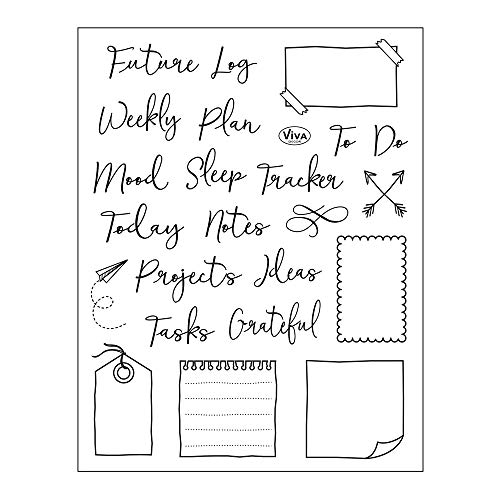 Future Log
Weekly Plan
VIVA
DECOR
To Do
Mood Sleep Tracker
Today Notes
Projects Ideas
Tasks Grateful